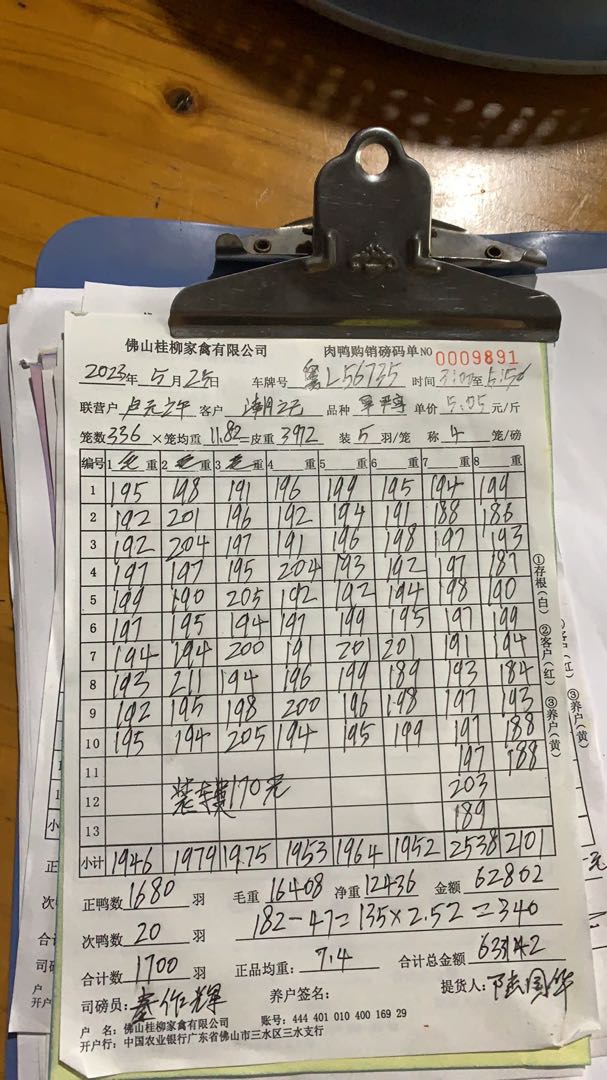 佛山桂柳家禽有限公司 肉鸭购销磅码单 NO 0009891
2023年 5月 25日 车牌号 粤L56735 时间 至
联营户 客户 品种 单价 5.05 元/斤
笼数 336 ×笼均重 11.82 =皮重 3972 装 5 羽/笼 称 4 笼/磅
编号 1 重 2 重 3 重 4 重 5 重 6 重 7 重 8 重
1 195 198 191 196 199 195 194 199
2 192 201 196 192 194 191 188 186
3 192 204 197 191 196 198 197 193
4 197 197 195 204 193 192 197 187
5 199 190 205 192 192 194 198 190
6 197 195 194 197 199 195 197 199
7 194 194 200 191 201 201 191 194
8 193 211 194 196 199 189 193 184
9 192 195 198 200 196 198 197 193
10 195 194 205 194 195 199 197 188
11 197 188
12 装车费170元 203
13 189
小计 1946 1979 1975 1953 1964 1952 2538 2101
正鸭数 1680 羽 毛重 16408 净重 12436 金额 62802
次鸭数 20 羽 182-47=135×2.52=340
合计数 1700 羽 正品均重: 7.4 合计总金额 63142
司磅员: 秦作辉 养户签名: 提货人: 陆国华
户 名: 佛山桂柳家禽有限公司 账号: 444 401 010 400 169 29
开户行: 中国农业银行广东省佛山市三水区三水支行
①存根(白) ②客户(红) ③养户(黄)